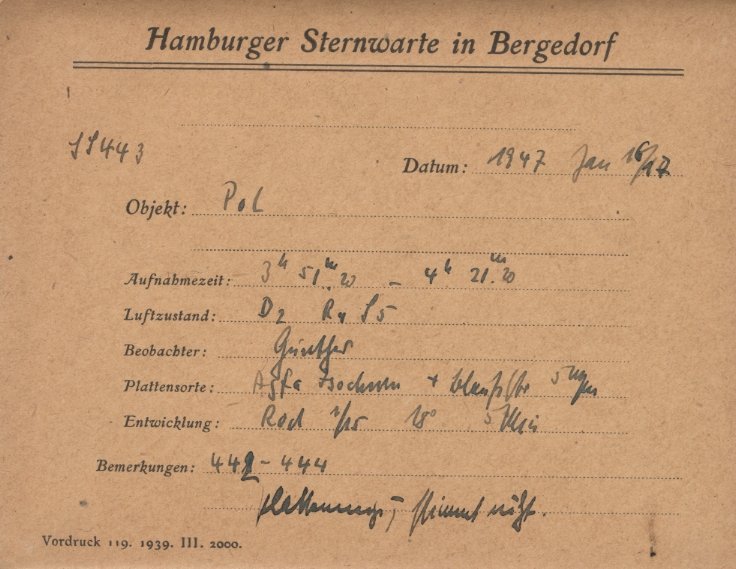 Hamburger Sternwarte in Bergedorf
SS443
Datum: 1947 Jan 16/17
Objekt: Pol
Aufnahmezeit: 3h 51m.20 – 4h 21m.20
Luftzustand: D2 R4 S5
Beobachter: Günther
Plattensorte: Agfa Isochrom +
Entwicklung: Rod 1/25 18° 5 Min
Bemerkungen: 442 – 444
stimmt nicht.
Vordruck 119. 1939. III. 2000.